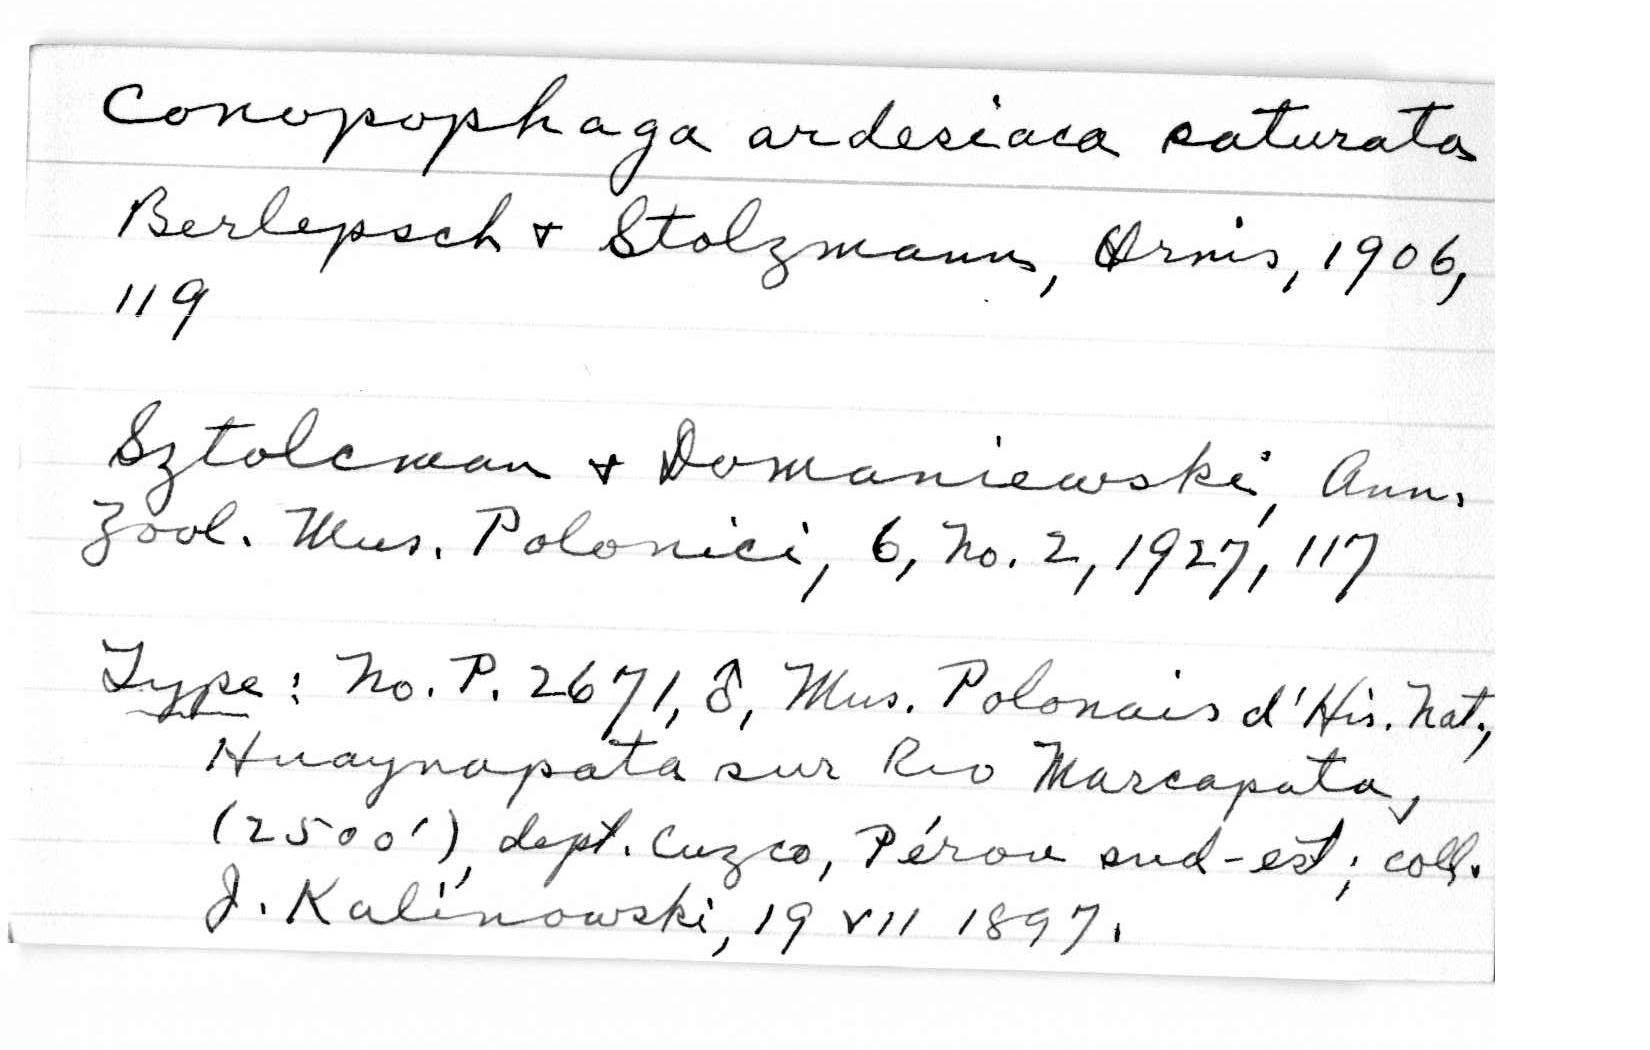 Conopophaga ardesiaca saturata
Berlepsch & Stolzmann, Ornis, 1906,
119
Sztolcman & Domaniewski, Ann.
Zool. Mus. Polonici, 6, No. 2, 1927, 117
Type: No. P. 2671, ♂, Mus. Polonais d'His. Nat.,
Huaynapata sur Rio Marcapata,
(2500'), dept. Cuzco, Pérou sud-est; coll.
J. Kalinowski, 19 VII 1897.